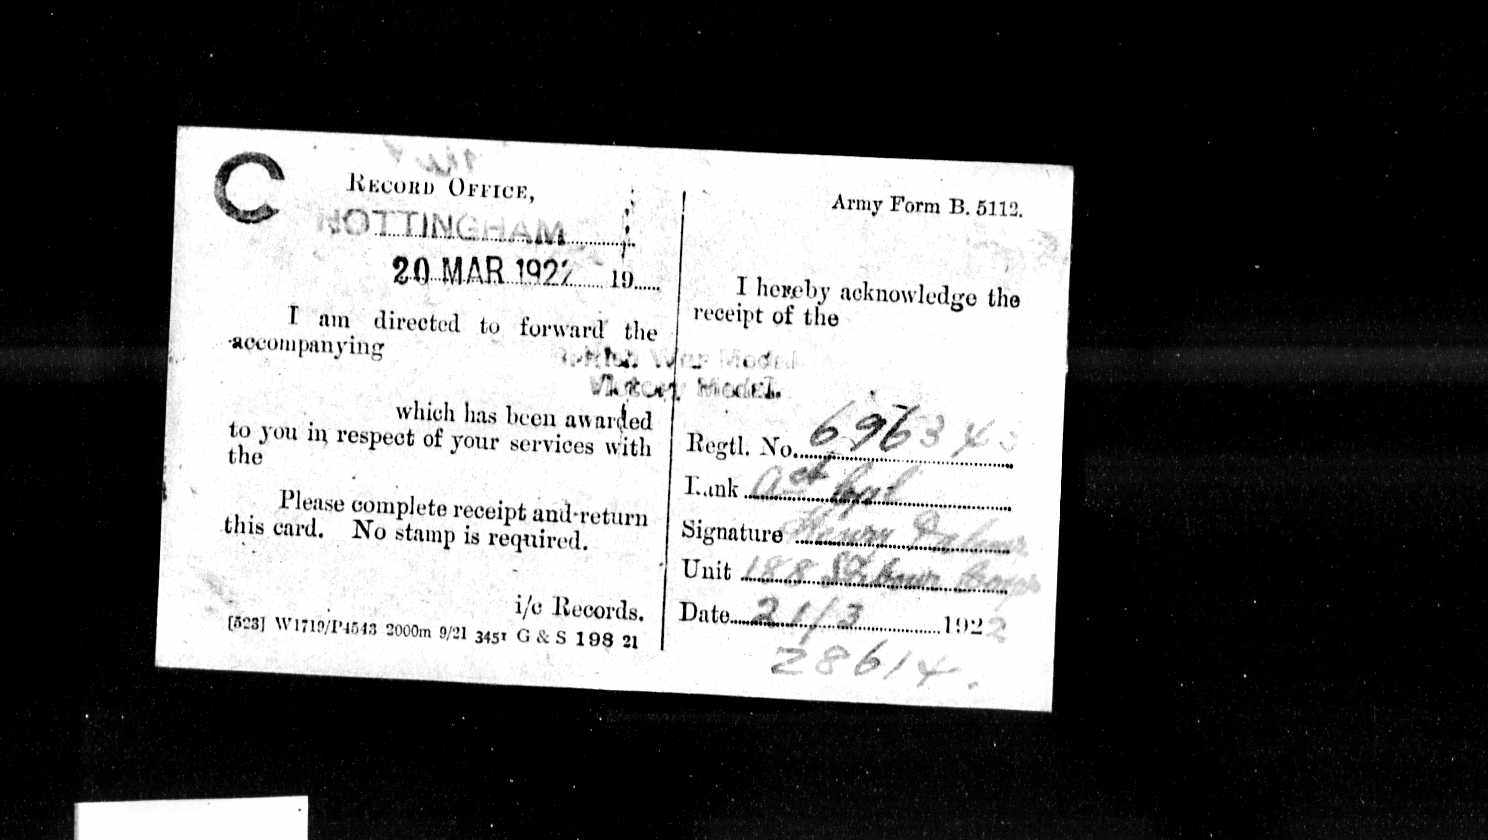 C
RECORD OFFICE,
NOTTINGHAM
20 MAR 1922 19
I am directed to forward the
accompanying
British War Medal
Victory Medal.
which has been awarded
to you in respect of your services with
the
Please complete receipt and return
this card. No stamp is required.
i/c Records.
[523] W1719/P4543 2000m 9/21 345¹ G & S 198 21
Army Form B. 5112.
I hereby acknowledge the
receipt of the
Regtl. No. 69634
Rank Act Cpl
Signature Henry
Unit 188 Labour
Date 21/3 1922
28614.